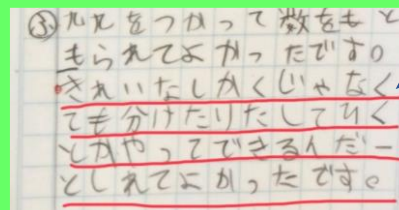 ㋛ 九九をつかって数をもと
もられてよかったです。
きれいなしかくじゃなく
ても分けたりたしてひく
とかやってできるんだー
としれてよかったです。